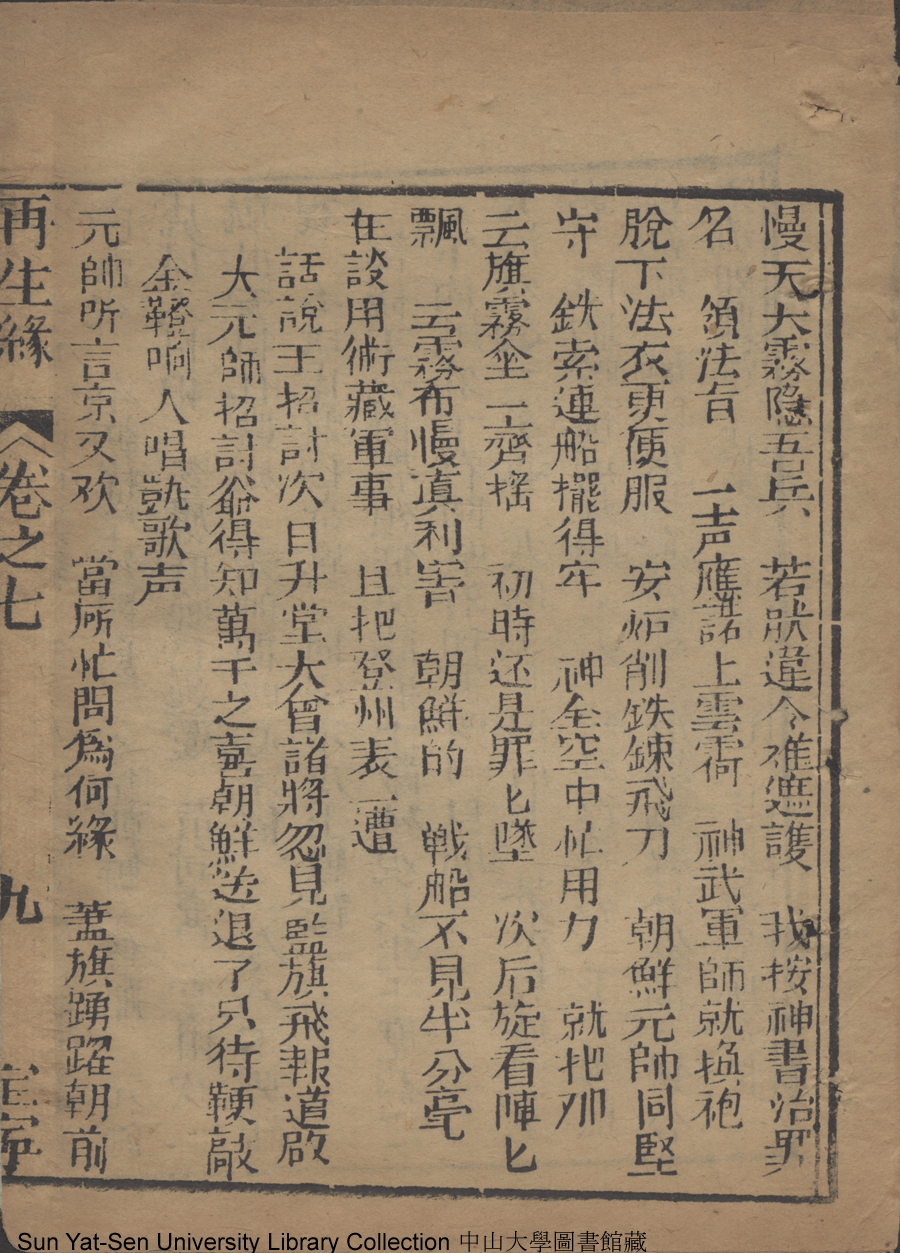 慢天大霧隐吾兵　若狀違令难遮護　我按神書治罪
名　領法旨　一声應諾上雲霄　神武軍師就换袍
脫下法衣更便服　安炉削鉄鍊飛刀　朝鮮元帥同堅
守　鉄索連船擺得牢　神仝空中忙用力　就把那
云旗霧伞一齊摇　初時还是罪匕墜　次后旋看陣匕
飄　云霧布慢真利害　朝鮮的　戦船不見半分毫
在談用術藏軍事　且把登州表一遭
話說王招討次日升堂大會諸將忽見監旗飛報道啟
大元帥招討爺得知萬千之喜朝鮮送退了只待鞭敲
金鞾响人唱凱歌声
元帥听言京又欢　當所忙問為何緣　蓋旗踴躍朝前
再生緣　卷之七　九
Sun Yat-Sen University Library Collection 中山大學圖書館藏